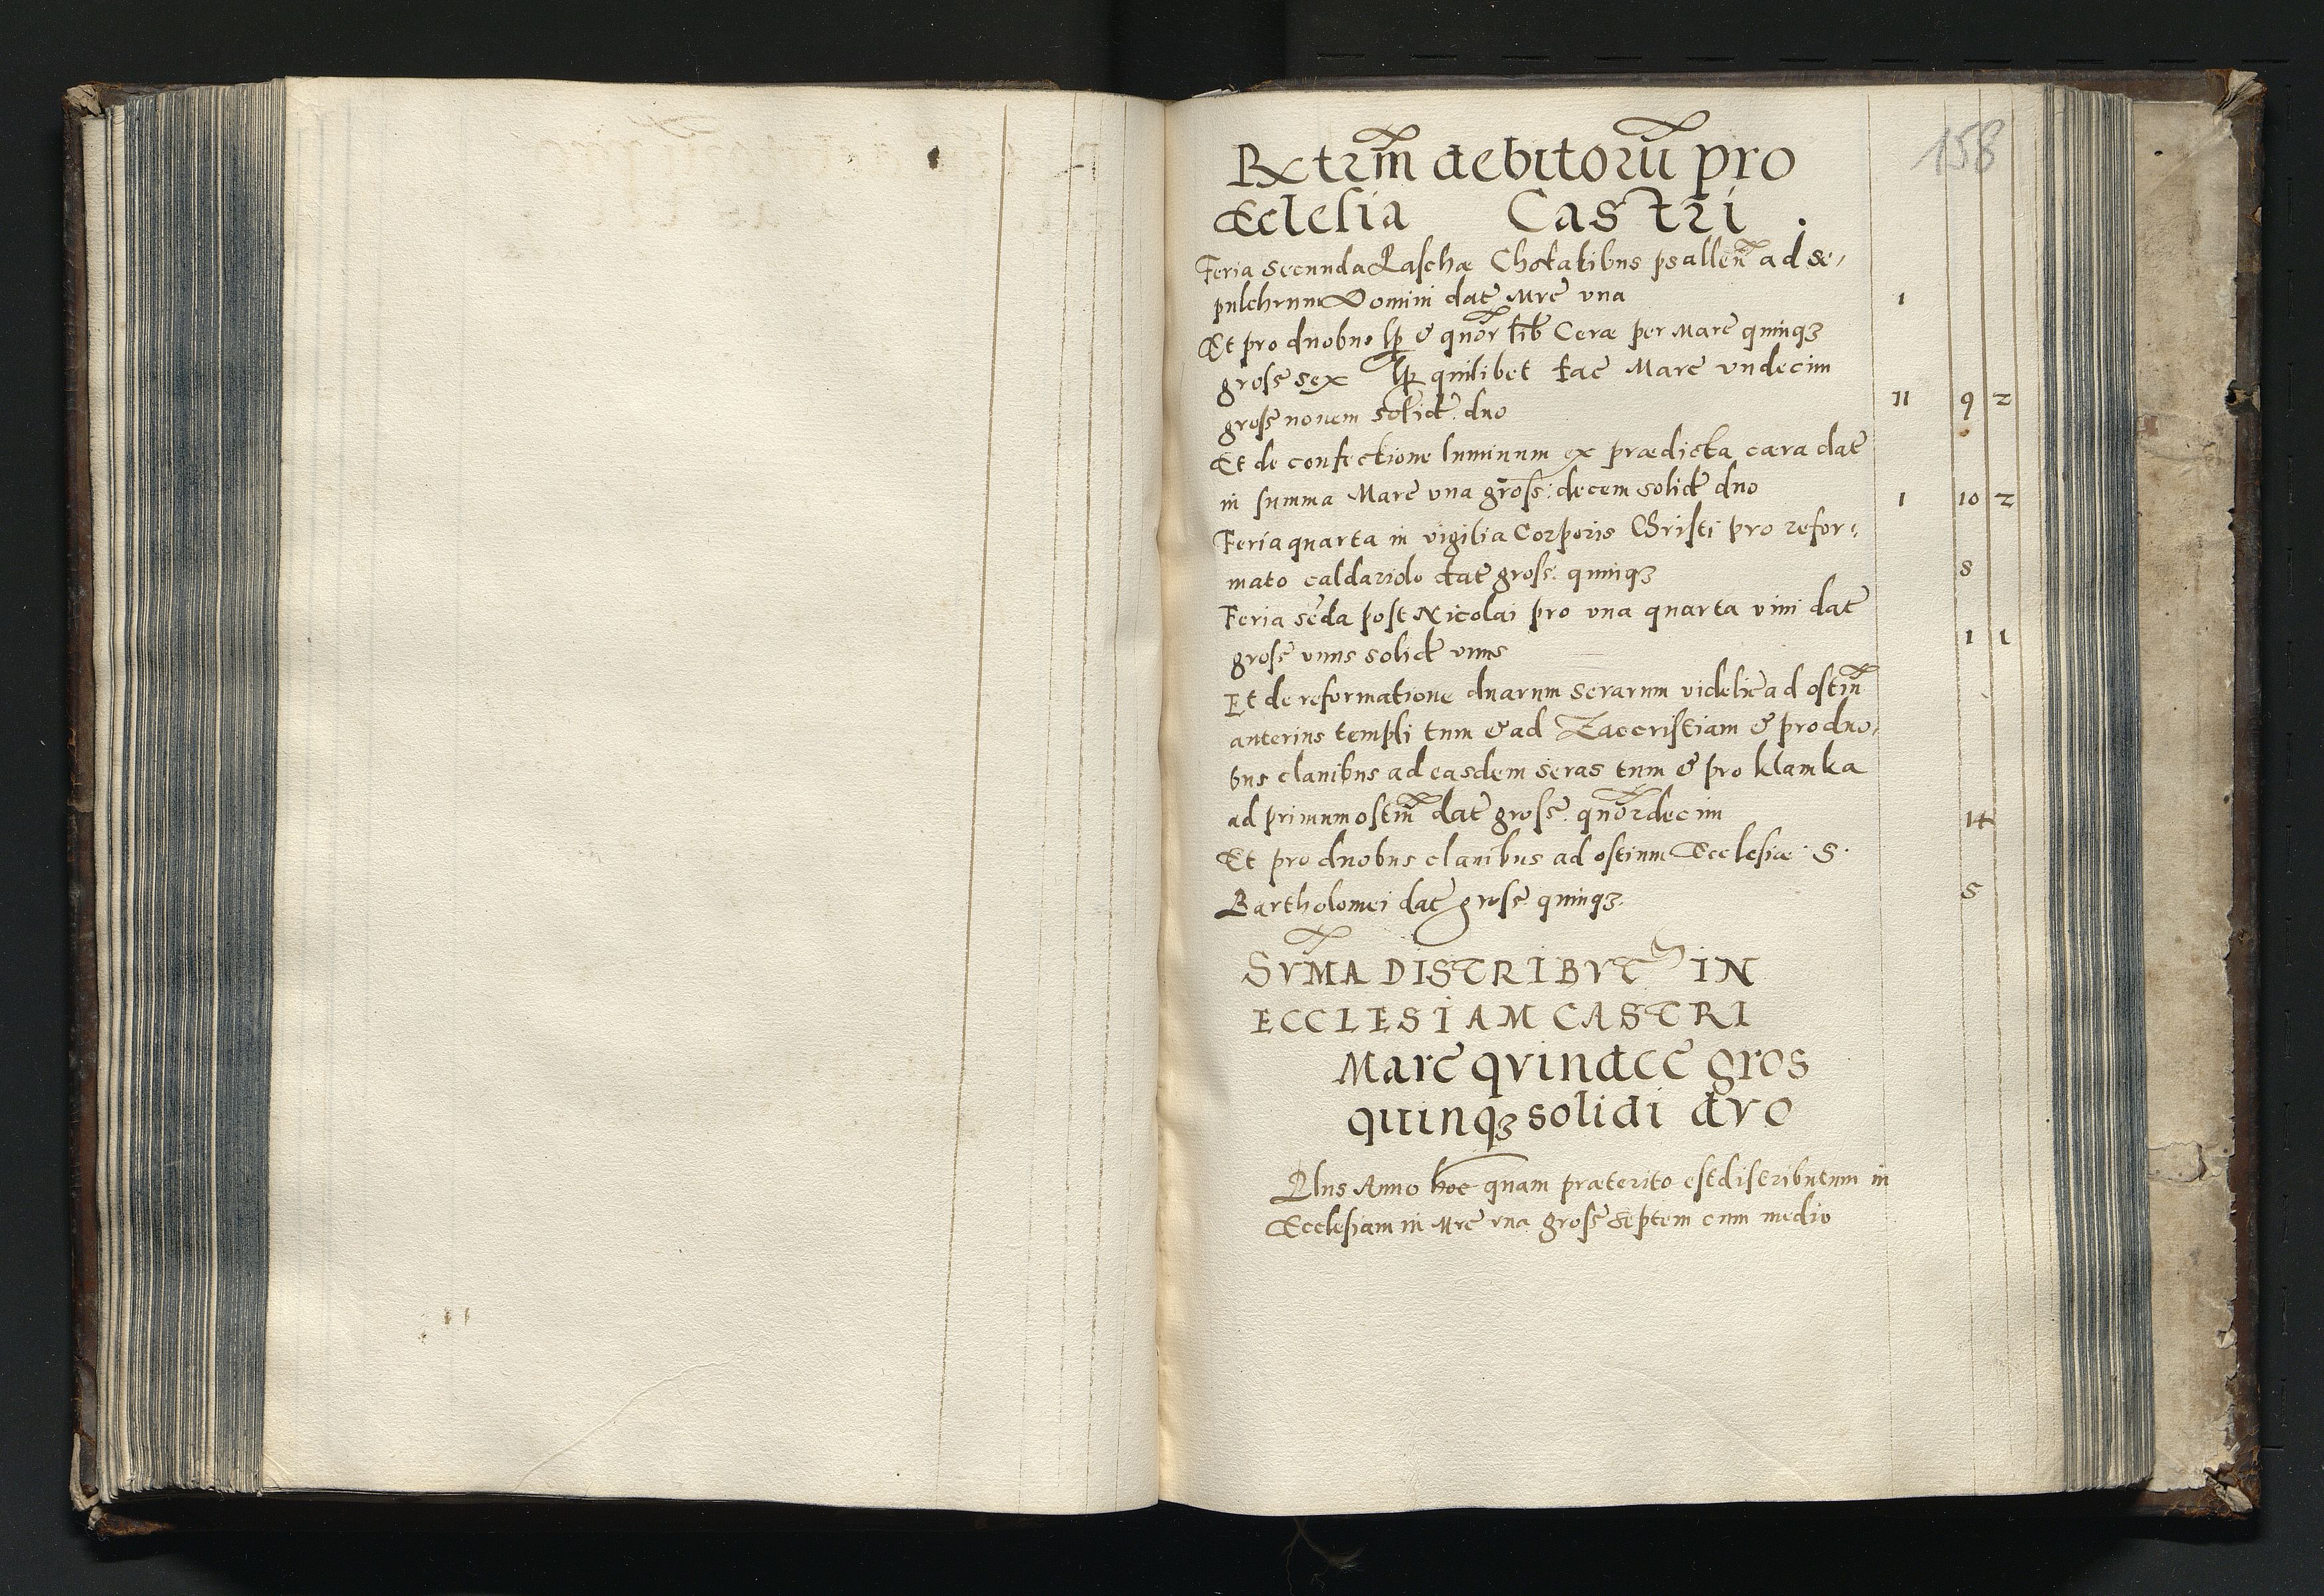 158
Extrm̃ debitorũ pro
Eclesia Castri .
Feria secunda Paschæ Chotatibus psalleñ ad se,
pulchrum Domini dat̃ Mrc̃ vna 1
Et pro duobus lp & quõr lib Ceræ per Marc̃ quinqꝫ
gross̃ sex lp quilibet fac̃ Marc̃ vndecim
gross̃ nouem solid̃ duo 11 9 2
Et de confectione luminum ex prædicta cæra dat̃
in summa Marc̃ vna gross: decem solid̃ duo 1 10 2
Feria quarta in vigilia Corporis Christi pro refor,
mato caldariolo dat̃ gross: quinqꝫ 5
Feria sc̃da post Nicolai pro vna quarta vini dat̃
gross̃ vnus solid̃ vnus 1 1
Et de reformatione duarum serarum videlic̃ ad ostiũ
anterius templi tum & ad Zaccristiam & pro duo,
bus clauibus ad easdem seras tum & pro klamka
ad primum ostiũ dat̃ gross̃. quõrdecim 14
Et pro duobus clauibus ad ostium Ecclesiæ S.
Bartholomei dat̃ gross̃ quinqꝫ. 5
SVM̃A DISTRIBVT IN
ECCLESIAM CASTRI
Marc̃ qvindec̃ gros
quinqꝫ solidi dvo
Plus Anno hoc quam præterito est distributum in
Ecclesiam in Mrc̃ vna gross̃ septem cum medio